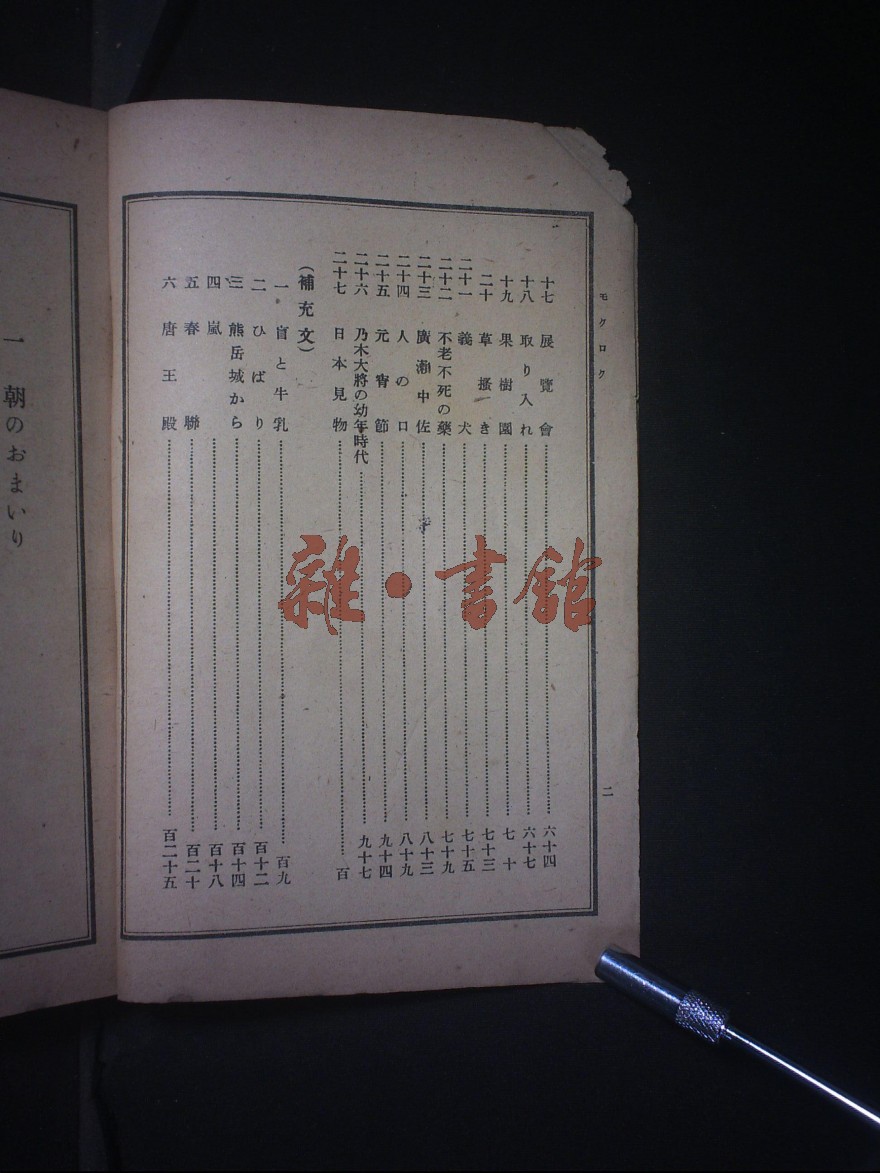 モクロク
二
十七 展覽會 六十四
十八 取り入れ 六十七
十九 果樹園 七十
二十 草搔き 七十三
二十一 義犬 七十五
二十二 不老不死の藥 七十九
二十三 廣瀨中佐 八十三
二十四 人の口 八十九
二十五 元宵節 九十四
二十六 乃木大將の幼年時代 九十七
二十七 日本見物 百
（補充文）
一 盲と牛乳 百九
二 ひばり 百十二
三 熊岳城から 百十四
四 嵐 百十八
五 春聯 百二十
六 唐王殿 百二十五
一 朝のおまいり
雜・書館